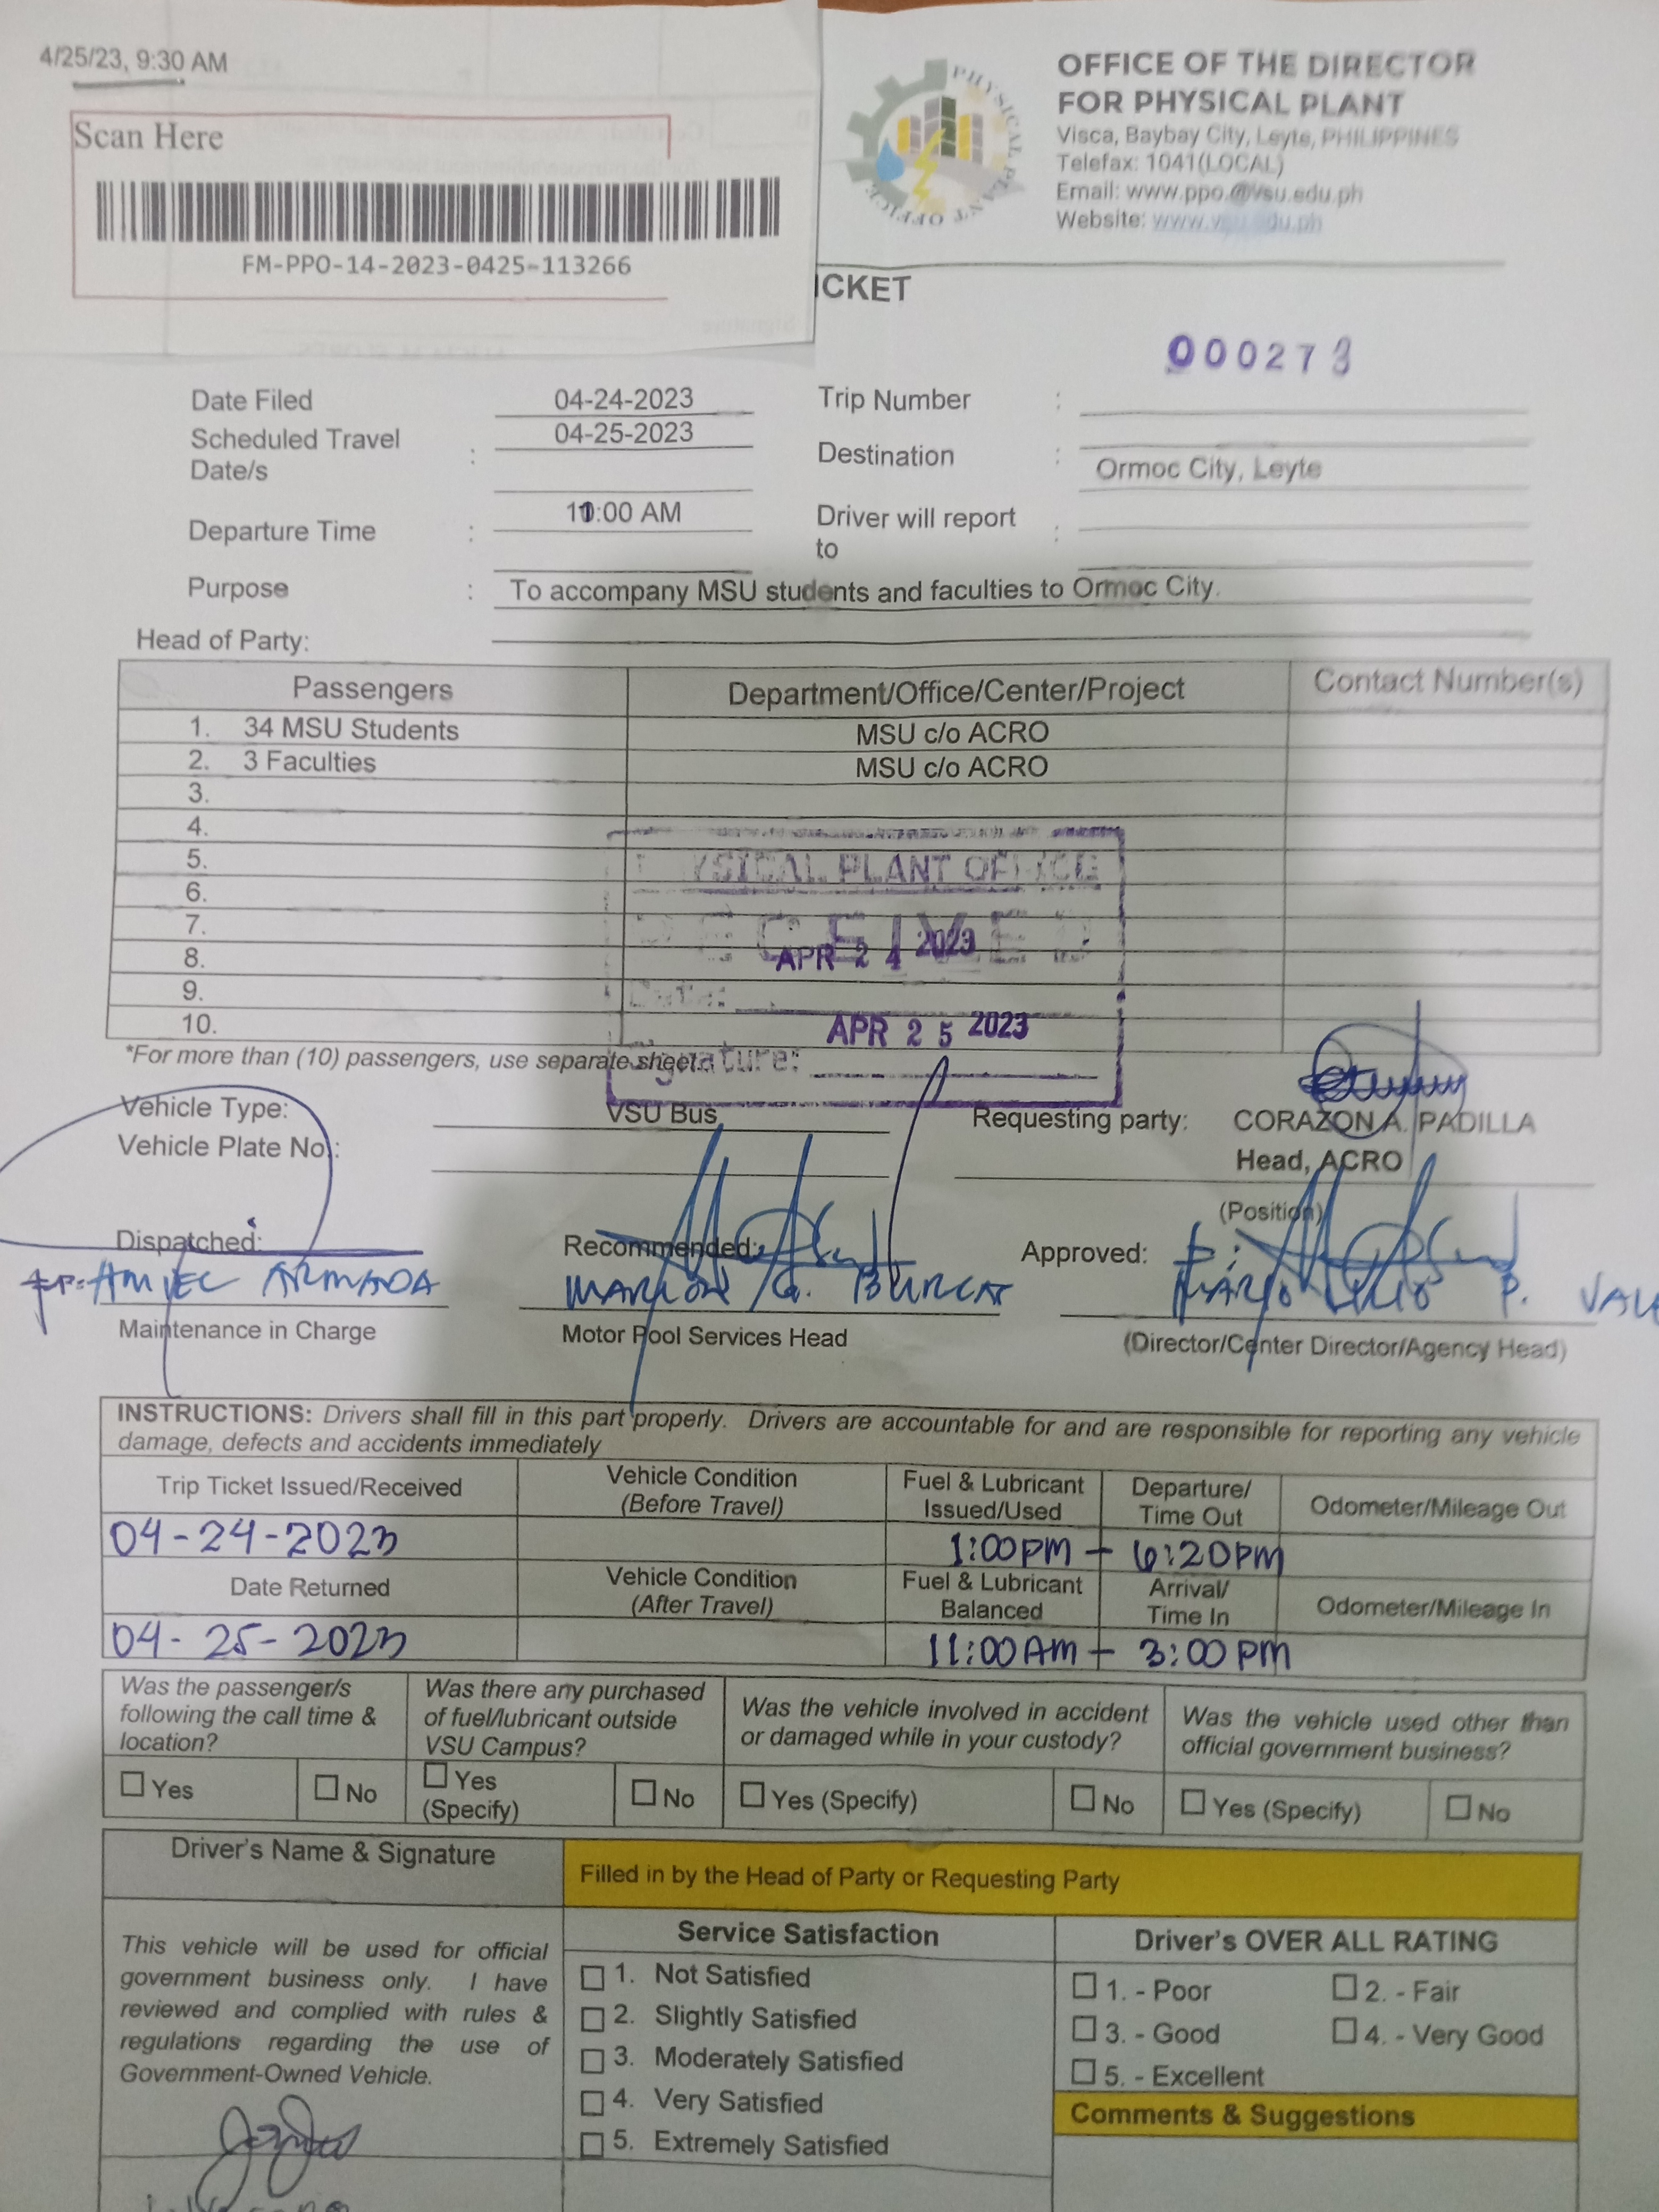 4/25/23, 9:30 AM
Scan Here
FM-PPO-14-2023-0425-113266
PHYSICAL PLANT OFFICE
OFFICE OF THE DIRECTOR
FOR PHYSICAL PLANT
Visca, Baybay City, Leyte, PHILIPPINES
Telefax: 1041(LOCAL)
Email: www.ppo.@vsu.edu.ph
Website: www.vsu.edu.ph
ICKET
000273
Date Filed 04-24-2023 Trip Number :
Scheduled Travel Date/s : 04-25-2023 Destination : Ormoc City, Leyte
Departure Time : 11:00 AM Driver will report to :
Purpose : To accompany MSU students and faculties to Ormoc City.
Head of Party:
Passengers Department/Office/Center/Project Contact Number(s)
1. 34 MSU Students MSU c/o ACRO
2. 3 Faculties MSU c/o ACRO
3.
4.
5.
6.
7.
8.
9.
10.
YSICAL PLANT OFFICE
RECEIVED
APR 24 2023
Date:
APR 25 2023
Signature:
*For more than (10) passengers, use separate sheet.
Vehicle Type: VSU Bus Requesting party: CORAZON A. PADILLA
Vehicle Plate No.: Head, ACRO
(Position)
Dispatched: Recommended: Approved:
ARMADA MARLON G. BURLAS MARIO LILIO P.
Maintenance in Charge Motor Pool Services Head (Director/Center Director/Agency Head)
INSTRUCTIONS: Drivers shall fill in this part properly. Drivers are accountable for and are responsible for reporting any vehicle
damage, defects and accidents immediately
Trip Ticket Issued/Received Vehicle Condition (Before Travel) Fuel & Lubricant Issued/Used Departure/ Time Out Odometer/Mileage Out
04-24-2023 1:00PM - 6:20PM
Date Returned Vehicle Condition (After Travel) Fuel & Lubricant Balanced Arrival/ Time In Odometer/Mileage In
04-25-2023 11:00AM - 3:00PM
Was the passenger/s following the call time & location? Was there any purchased of fuel/lubricant outside VSU Campus? Was the vehicle involved in accident or damaged while in your custody? Was the vehicle used other than official government business?
Yes No Yes (Specify) No Yes (Specify) No Yes (Specify) No
Driver's Name & Signature
Filled in by the Head of Party or Requesting Party
This vehicle will be used for official
government business only. I have
reviewed and complied with rules &
regulations regarding the use of
Government-Owned Vehicle.
Service Satisfaction
1. Not Satisfied
2. Slightly Satisfied
3. Moderately Satisfied
4. Very Satisfied
5. Extremely Satisfied
Driver's OVER ALL RATING
1. - Poor 2. - Fair
3. - Good 4. - Very Good
5. - Excellent
Comments & Suggestions